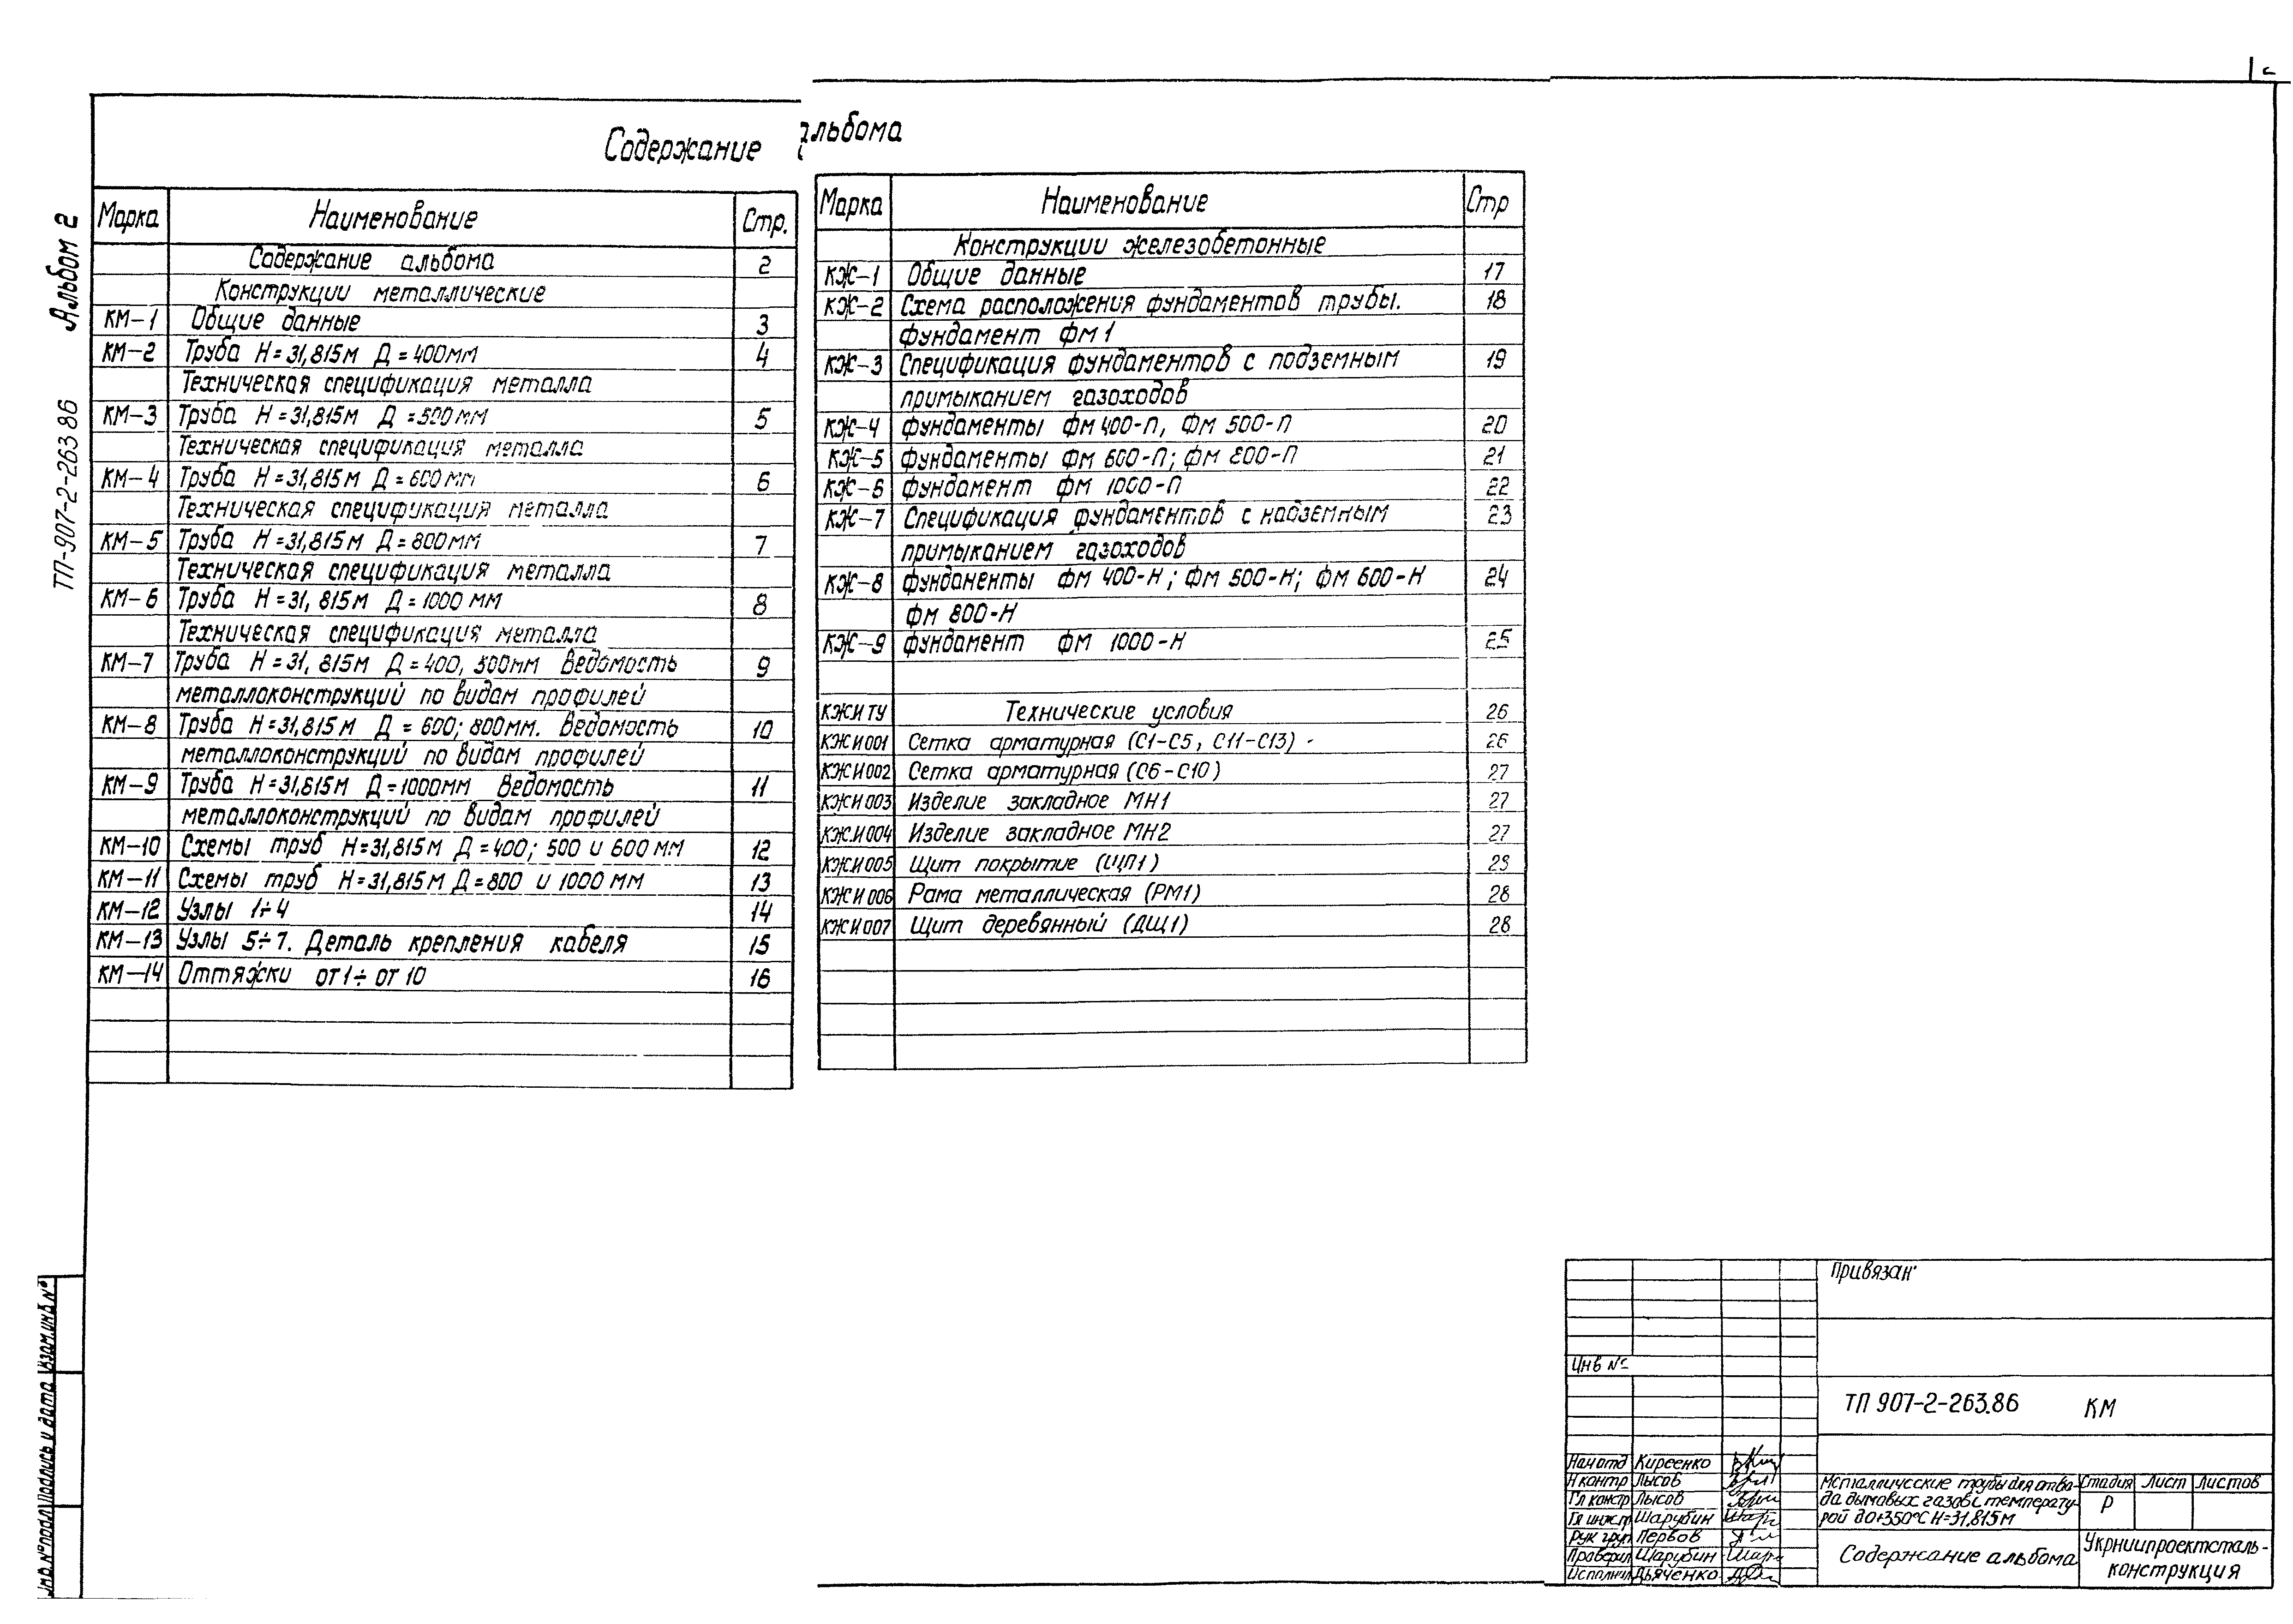 Содержание альбома
Альбом 2
ТП-907-2-263 86
Марка Наименование Стр.
Содержание альбома 2
Конструкции металлические
КМ-1 Общие данные 3
КМ-2 Труба Н=31,815м Д=400мм 4
Техническая спецификация металла
КМ-3 Труба Н=31,815м Д=500мм 5
Техническая спецификация металла
КМ-4 Труба Н=31,815м Д=600мм 6
Техническая спецификация металла
КМ-5 Труба Н=31,815м Д=800мм 7
Техническая спецификация металла
КМ-6 Труба Н=31,815м Д=1000 мм 8
Техническая спецификация металла
КМ-7 Труба Н=31,815м Д=400, 500мм Ведомость 9
металлоконструкций по видам профилей
КМ-8 Труба Н=31,815м Д=600; 800мм. Ведомость 10
металлоконструкций по видам профилей
КМ-9 Труба Н=31,815м Д=1000мм Ведомость 11
металлоконструкций по видам профилей
КМ-10 Схемы труб Н=31,815м Д=400; 500 и 600 мм 12
КМ-11 Схемы труб Н=31,815м Д=800 и 1000 мм 13
КМ-12 Узлы 1÷4 14
КМ-13 Узлы 5÷7. Деталь крепления кабеля 15
КМ-14 Оттяжки от1÷от10 16
Марка Наименование Стр
Конструкции железобетонные
КЖ-1 Общие данные 17
КЖ-2 Схема расположения фундаментов трубы. 18
фундамент фм1
КЖ-3 Спецификация фундаментов с подземным 19
примыканием газоходов
КЖ-4 фундаменты фм 400-П, фм 500-П 20
КЖ-5 фундаменты фм 600-П; фм 800-П 21
КЖ-6 фундамент фм 1000-П 22
КЖ-7 Спецификация фундаментов с надземным 23
примыканием газоходов
КЖ-8 фундаменты фм 400-Н; фм 500-Н; фм 600-Н 24
фм 800-Н
КЖ-9 фундамент фм 1000-Н 25
КЖИ ТУ Технические условия 26
КЖИ001 Сетка арматурная (С1-С5, С11-С13) 26
КЖИ002 Сетка арматурная (С6-С10) 27
КЖИ003 Изделие закладное МН1 27
КЖИ004 Изделие закладное МН2 27
КЖИ005 Щит покрытие (ЩП1) 28
КЖИ006 Рама металлическая (РМ1) 28
КЖИ007 Щит деревянный (ДЩ1) 28
Взам.инв.№
Подпись и дата
Инв.№подл
Привязан
Инв №
ТП 907-2-263.86 КМ
Нач отд Киреенко
Н контр Лысов
Гл констр Лысов
Гл инж.пр Шарубин
Рук груп Первов
Проверил Шарубин
Исполнил Дьяченко
Металлические трубы для отво-
да дымовых газов с температу-
рой до+350°С Н=31,815м
Стадия Лист Листов
Р
Содержание альбома
Укрниипроектсталь-
конструкция